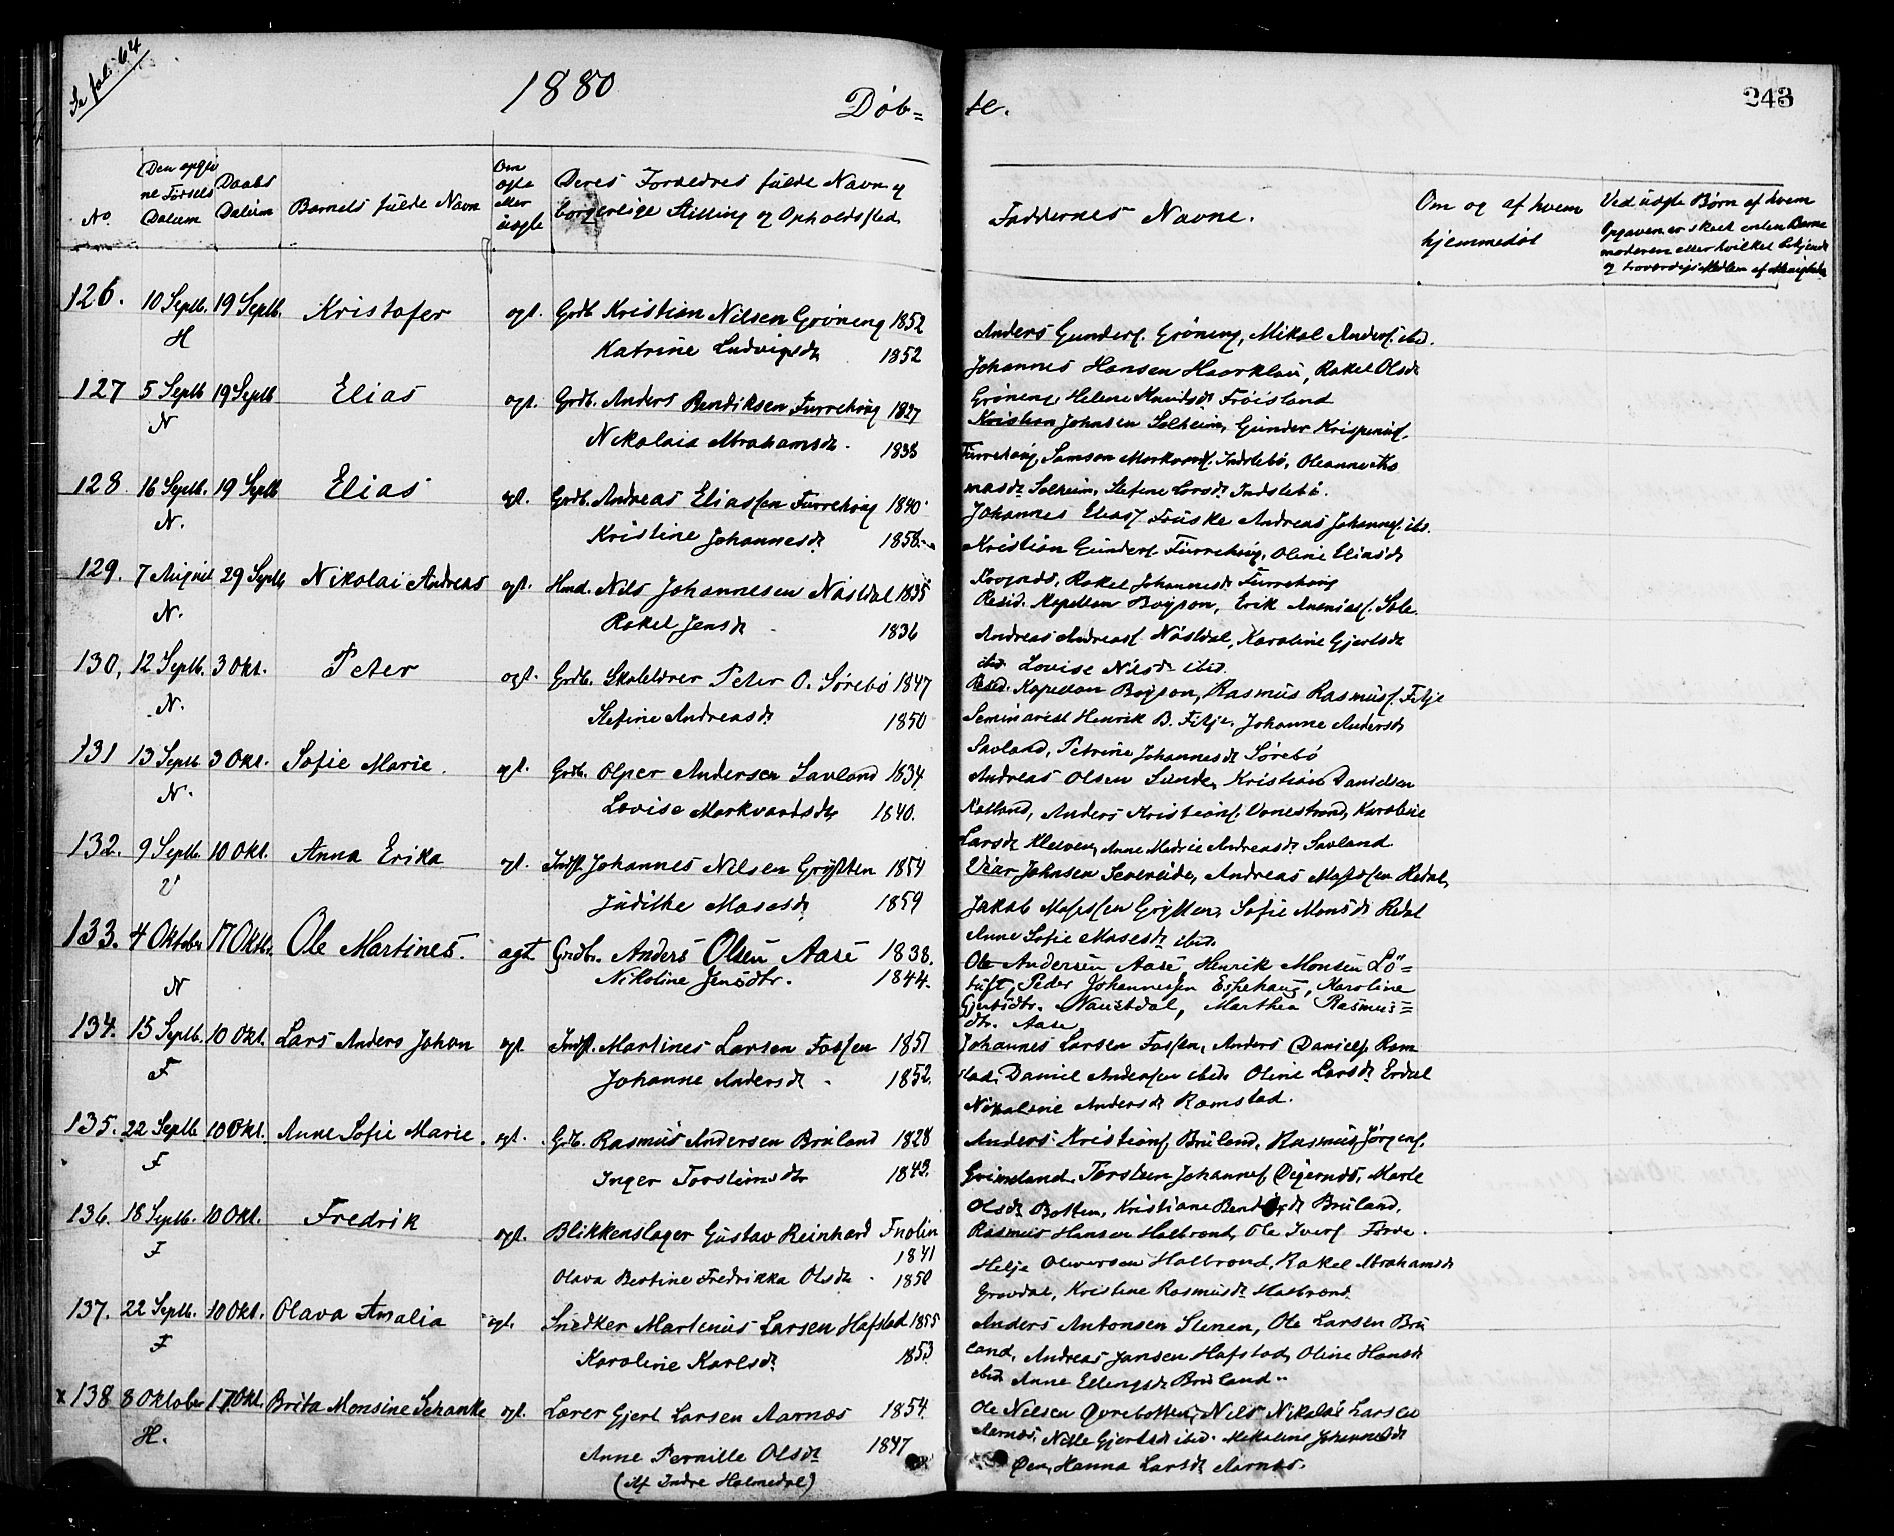 Se fol. 64
1880
Döb=
te.
243
No
Den opgiv
ne Fødsels
Datum
Daabs
Datum
Barnets fulde Navn
Om
ægte
eller
uægte
Deres Forældres fulde Navn og
borgerlige Stilling og Opholdssted
Faddernes Navne.
Om og af hvem
hjemmedøbt
Ved uægte Børn af hvem
Opgaven er skeet enten Barne
moderen eller hvilket bekjendt
og troværdigt Medlem af Menigheden
126. 10 Septb. 19 Septb. Kristofer ægt. Grdb. Kristian Nilsen Gröning 1852
H Katrine Ludvigsdr 1852
Anders Gunders. Gröning, Mikal Anders. ibd.
Johannes Hansen Haarklau, Rakel Olsdr
Gröning, Helene Knudsdr Fröisland
127 5 Septb 19 Septb Elias ægt. Grdb. Anders Bendiksen Furrehöig 1827
N Nikolaia Abrahamsdr. 1838
Kristian Johnsen Solheim, Gunder Krispinus.
Furrehöig, Samson Markvards. Indrebö, Oleanne Tho
masdr Solheim, Stefine Larsdr Indrebö.
128. 16 Septb. 19 Septb Elias ægt. Grdb. Andreas Eliassen Furrehöig 1840
N. Kristine Johannesdr. 1858.
Johannes Elias. Fruske Andreas Johannes. ibd.
Kristian Gunders. Furrehöig, Oline Eliasdr
Rakel Johannesdr Furrehöig
129. 7 August 29 Septb. Nikolai Andreas ægt. Hmd. Nils Johannesen Näsdal 1835
N. Rakel Jensdr 1836
Resid. Kapellan Boyson, Erik Ananias. Sole
Andreas Andreas. Näsdal, Karoline Gjertsdr
ibd. Lovise Nilsdr ibid.
130, 12 Septb. 3 Okt. Peter ægt. Grdb. Skolelärer Peter O. Sörebö 1847
N. Stefine Andreasdr. 1850
Resid. Kapellan Boyson, Rasmus Rasmus. Fitje
Seminarist Henrik B. Fitje, Johanne Andersdr
Savland, Petrine Johannesdr Sörebö
131 13 Septb 3 Okt. Sofie Marie. ægt. Grdb. Olper Andersen Savland 1834.
N. Lovise Markvardsdr 1840.
Andreas Olsen Sunde, Kristian Danielsen
Anders Kristians. Vonestrand, Karoline
Larsdr Kleiven, Anne Marie Andreasdr Savland.
132. 9 Septb. 10 Okt. Anna Erika ægt. Indst. Johannes Nilsen Grytten 1854
V Judithe Mosesdr 1859
Viar Johnsen Severeide, Andreas Mosessen Redal,
Jakob Mosessen Grytten, Sofie Monsdr Redal
Anne Sofie Mosesdr ibd.
133. 4 Oktober 17 Oktb. Ole Martines. ægt Grdbr. Anders Olsen Aase 1838.
N Nikoline Jensdtr. 1844.
Ole Andersen Aase, Henrik Monsen Lö=
tuft, Peder Johannesen Espehaug, Karoline
Gjertsdtr. Naustdal, Marthea Rasmus=
dtr. Aase
134. 15 Septb. 10 Okt. Lars Anders Johan ægt Indst. Martines Larsen Fossen 1851
F Johanne Andersdr. 1852.
Johannes Larsen Fossen, Anders Daniels. Ram
stad, Daniel Andersen ibd. Oline Larsdr Erdal
Nikoline Andersdr Ramstad.
135. 22 Septb 10 Okt. Anne Sofie Marie. ægt. Grdb. Rasmus Andersen Bruland 1828
F Inger Torsteinsdtr 1843.
Anders Kristians. Bruland, Rasmus Jörgens.
Grimeland, Torsten Johannes. Digernäs, Marte
Olsdr Botten, Kristiane Bendiksdr Bruland.
136. 18 Septb. 10 Okt. Fredrik ægt. Blikkenslager Gustav Reinhard Fnolin
1841
F Olava Bertine Fredrikka Olsdr. 1850
Rasmus Hansen Halbrend, Ole Ivers. Förde.
Helje Oliversen Halbrend, Rakel Abrahamsdr
Gravdal, Kristine Rasmusdr Halbrend.
137. 22 Septb. 10 Okt. Olava Amalia ægt. Snedker Martinus Larsen Hafstad 1855
F Karoline Karlsdr 1853
Anders Antonsen Stenen, Ole Larsen Bru
land, Andreas Jansen Hafstad, Oline Hansdr
ibd. Anne Ellingsdr Bruland
x 138 8 Oktober 17. Okt. Brita Monsine Schanke ægt. Lärer Gjert Larsen Aarnäs 1854.
H. Anne Pernille Olsdr 1847
(Af Indre Holmedal)
Ole Nilsen Övrebotten, Nils Nikolai Larsen
Aarnäs, Nille Gjertsdr ibd. Mikaline Johannesdr
Öen, Hanna Larsdr Aarnäs.